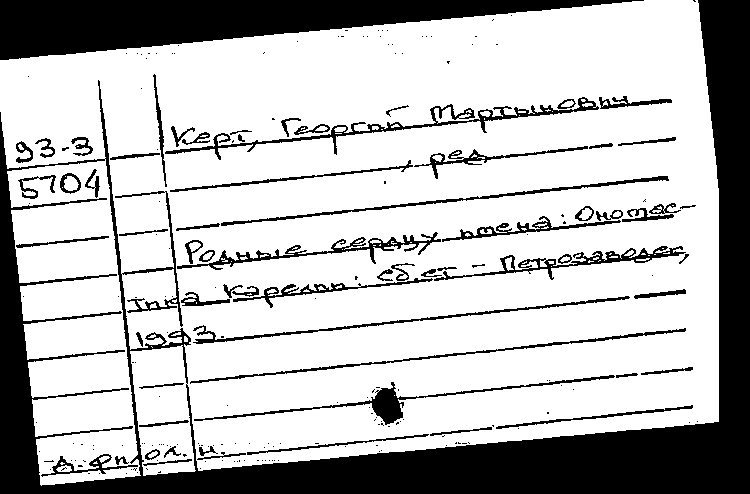 93-3
5704
Керт, Георгий Мартынович
, ред
Родные сердцу имена: Онотас-
тика Карелии: сб.ст - Петрозаводск,
1993.
д. филол. н.